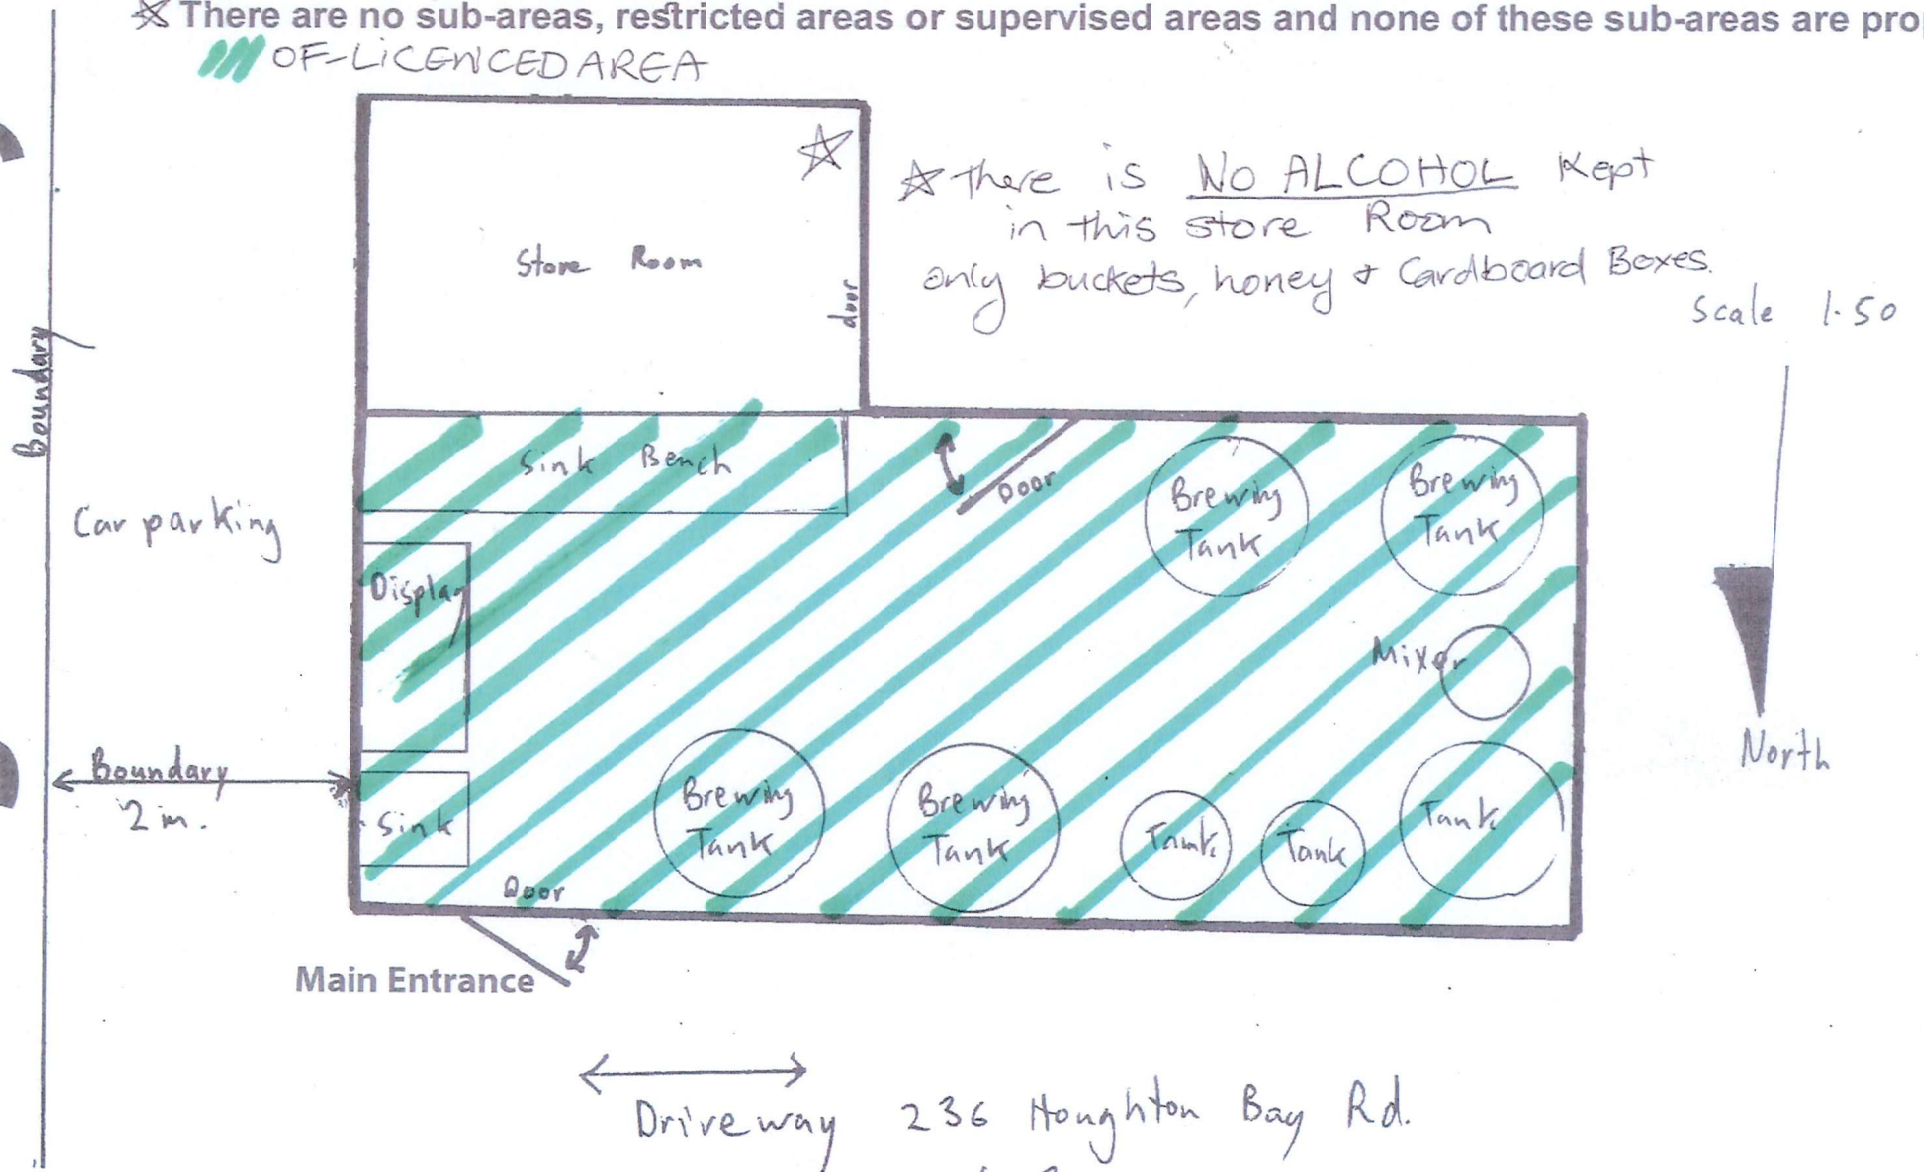 ☆ There are no sub-areas, restricted areas or supervised areas and none of these sub-areas are pro
OF-LICENCED AREA
☆ There is NO ALCOHOL Kept
in this store Room
only buckets, honey & Cardboard Boxes.
Scale 1.50
Store Room
door
Boundary
Sink Bench
Door
Brewing
Tank
Brewing
Tank
Car parking
Display
Mixer
North
Boundary
2 m.
Sink
Door
Brewing
Tank
Brewing
Tank
Tank
Tank
Tank
Main Entrance
Driveway 236 Houghton Bay Rd.